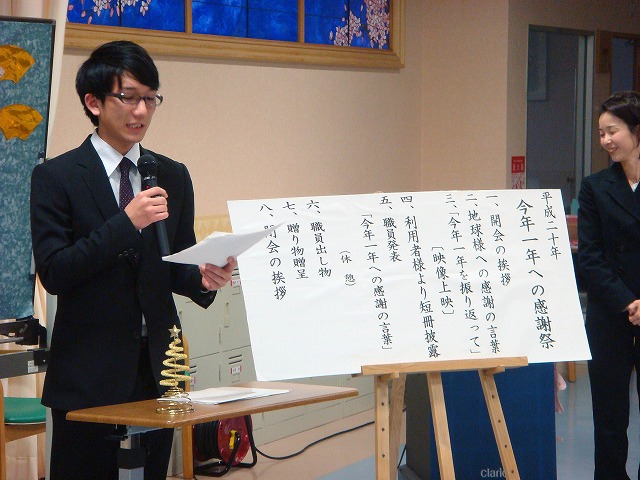 平成二十年
今年一年への感謝祭
一、開会の挨拶
二、地球様への感謝の言葉
三、「今年一年を振り返って」
〔映像上映〕
四、利用者様より短冊披露
五、職員発表
「今年一年への感謝の言葉」
（休憩）
六、職員出し物
七、贈り物贈呈
八、閉会の挨拶